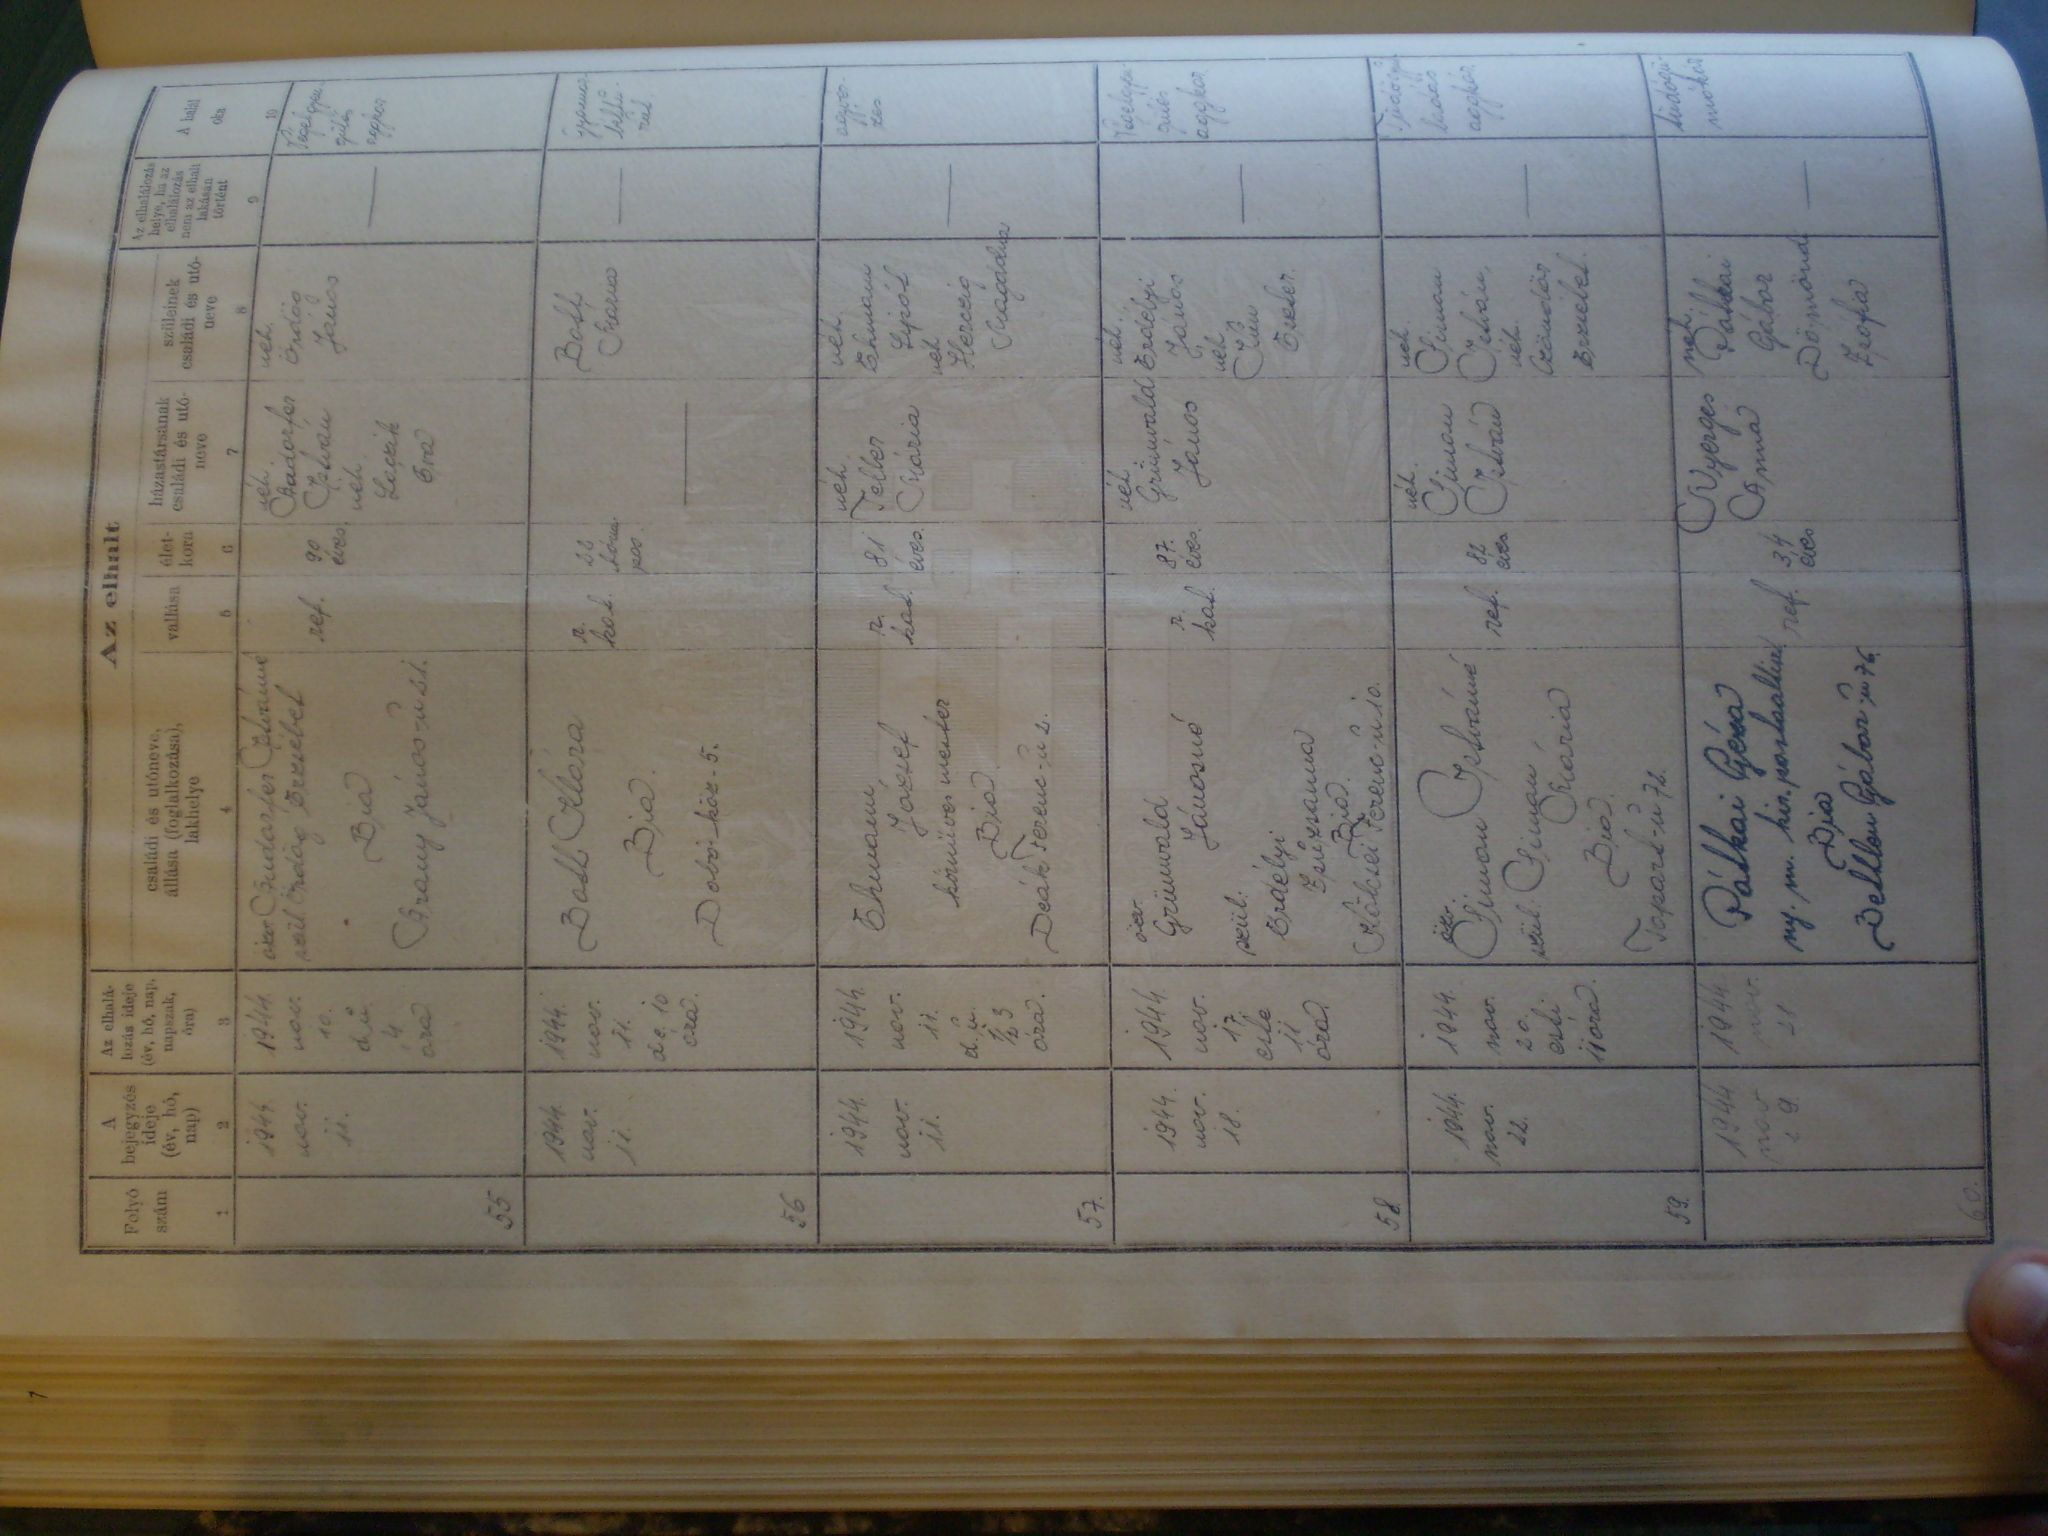 Az elhunt
Folyó
szám
A
bejegyzés
ideje
(év, hó,
nap)
Az elhalá-
lozás ideje
(év, hó, nap,
napszak,
óra)
családi és utóneve,
állása (foglalkozása),
lakhelye
vallása
élet-
kora
házastársának
családi és utó-
neve
szüleinek
családi és utó-
neve
Az elhalálozás
helye, ha az
elhalálozás
nem az elhalt
lakásán
történt
A halál
oka
1
2
3
4
5
6
7
8
9
10
55
1944.
nov.
11.
1944.
nov.
10.
d.u.
4
óra
özv. Istvánné
szül. Ördög Erzsébet
Bia
Arany János-u 21.
ref.
90
éves
néh.
István
néh.
Laczik
Éva
néh.
Ördög
János
56
1944.
nov.
11.
1944.
nov.
11.
de. 10
óra.
Klára
Bia.
Dobó-köz-5.
r.
kat.
Mária
57.
1944.
nov.
11.
1944.
nov.
11.
d.u.
1/2 3
óra.
Ehmann
József
kőműves mester
Bia.
Deák Ferenc-u 2.
r.
kat.
81
éves.
néh.
Teller
Mária
néh.
Ehmann
Lipót
néh.
Herczig
Magdolna
58
1944.
nov.
18.
1944.
nov.
17.
este
11
óra
özv.
Grünwald
Jánosné
szül.
Erdélyi
Zsuzsanna
Bia.
Rákóczi Ferenc-u. 10.
r.
kat.
87.
éves.
néh.
Grünwald
János
néh.
Erdélyi
János
néh.
Eszter.
59.
1944.
nov.
22.
1944.
nov.
20.
esti
11 óra.
özv.
Simon Istvánné
szül. Simon
Mária
Bia.
Topart-u 72.
ref.
82
éves
néh.
Simon
István
néh.
Simon
István,
néh.
Sándor
Erzsébet.
60.
1944
nov
29.
1944
nov.
21
Pátkai Géza
ny. m. kir. postaaltiszt
Bia
Bethlen Gábor-u 76.
ref.
34
éves
Nyerges
Anna
néh.
Pátkai
Gábor
Dömöndi
Zsófia